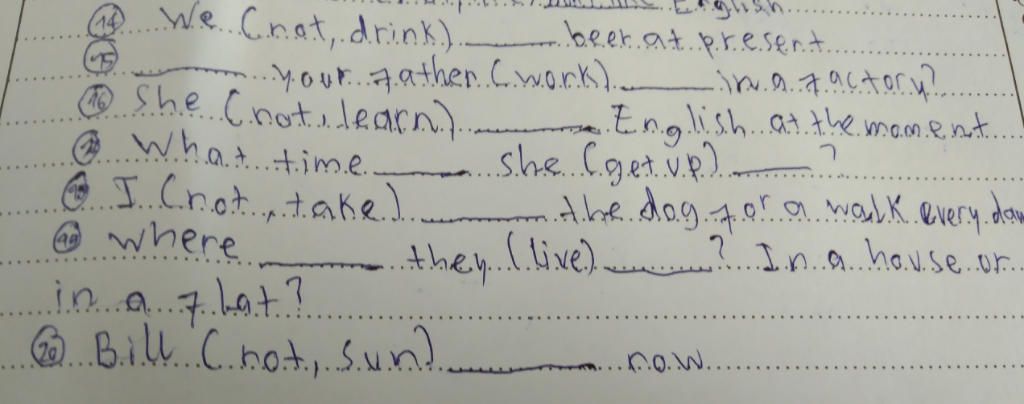 English
14 We (not, drink) ______ beer at present
15 ______ your father (work) ______ in a factory?
16 She (not, learn) ______ English at the moment
What time ______ she (get up) ______?
I (not, take) ______ the dog for a walk every day
19 where ______ they (live) ______? In a house or
in a flat?
20 Bill (not, sun) ______ now